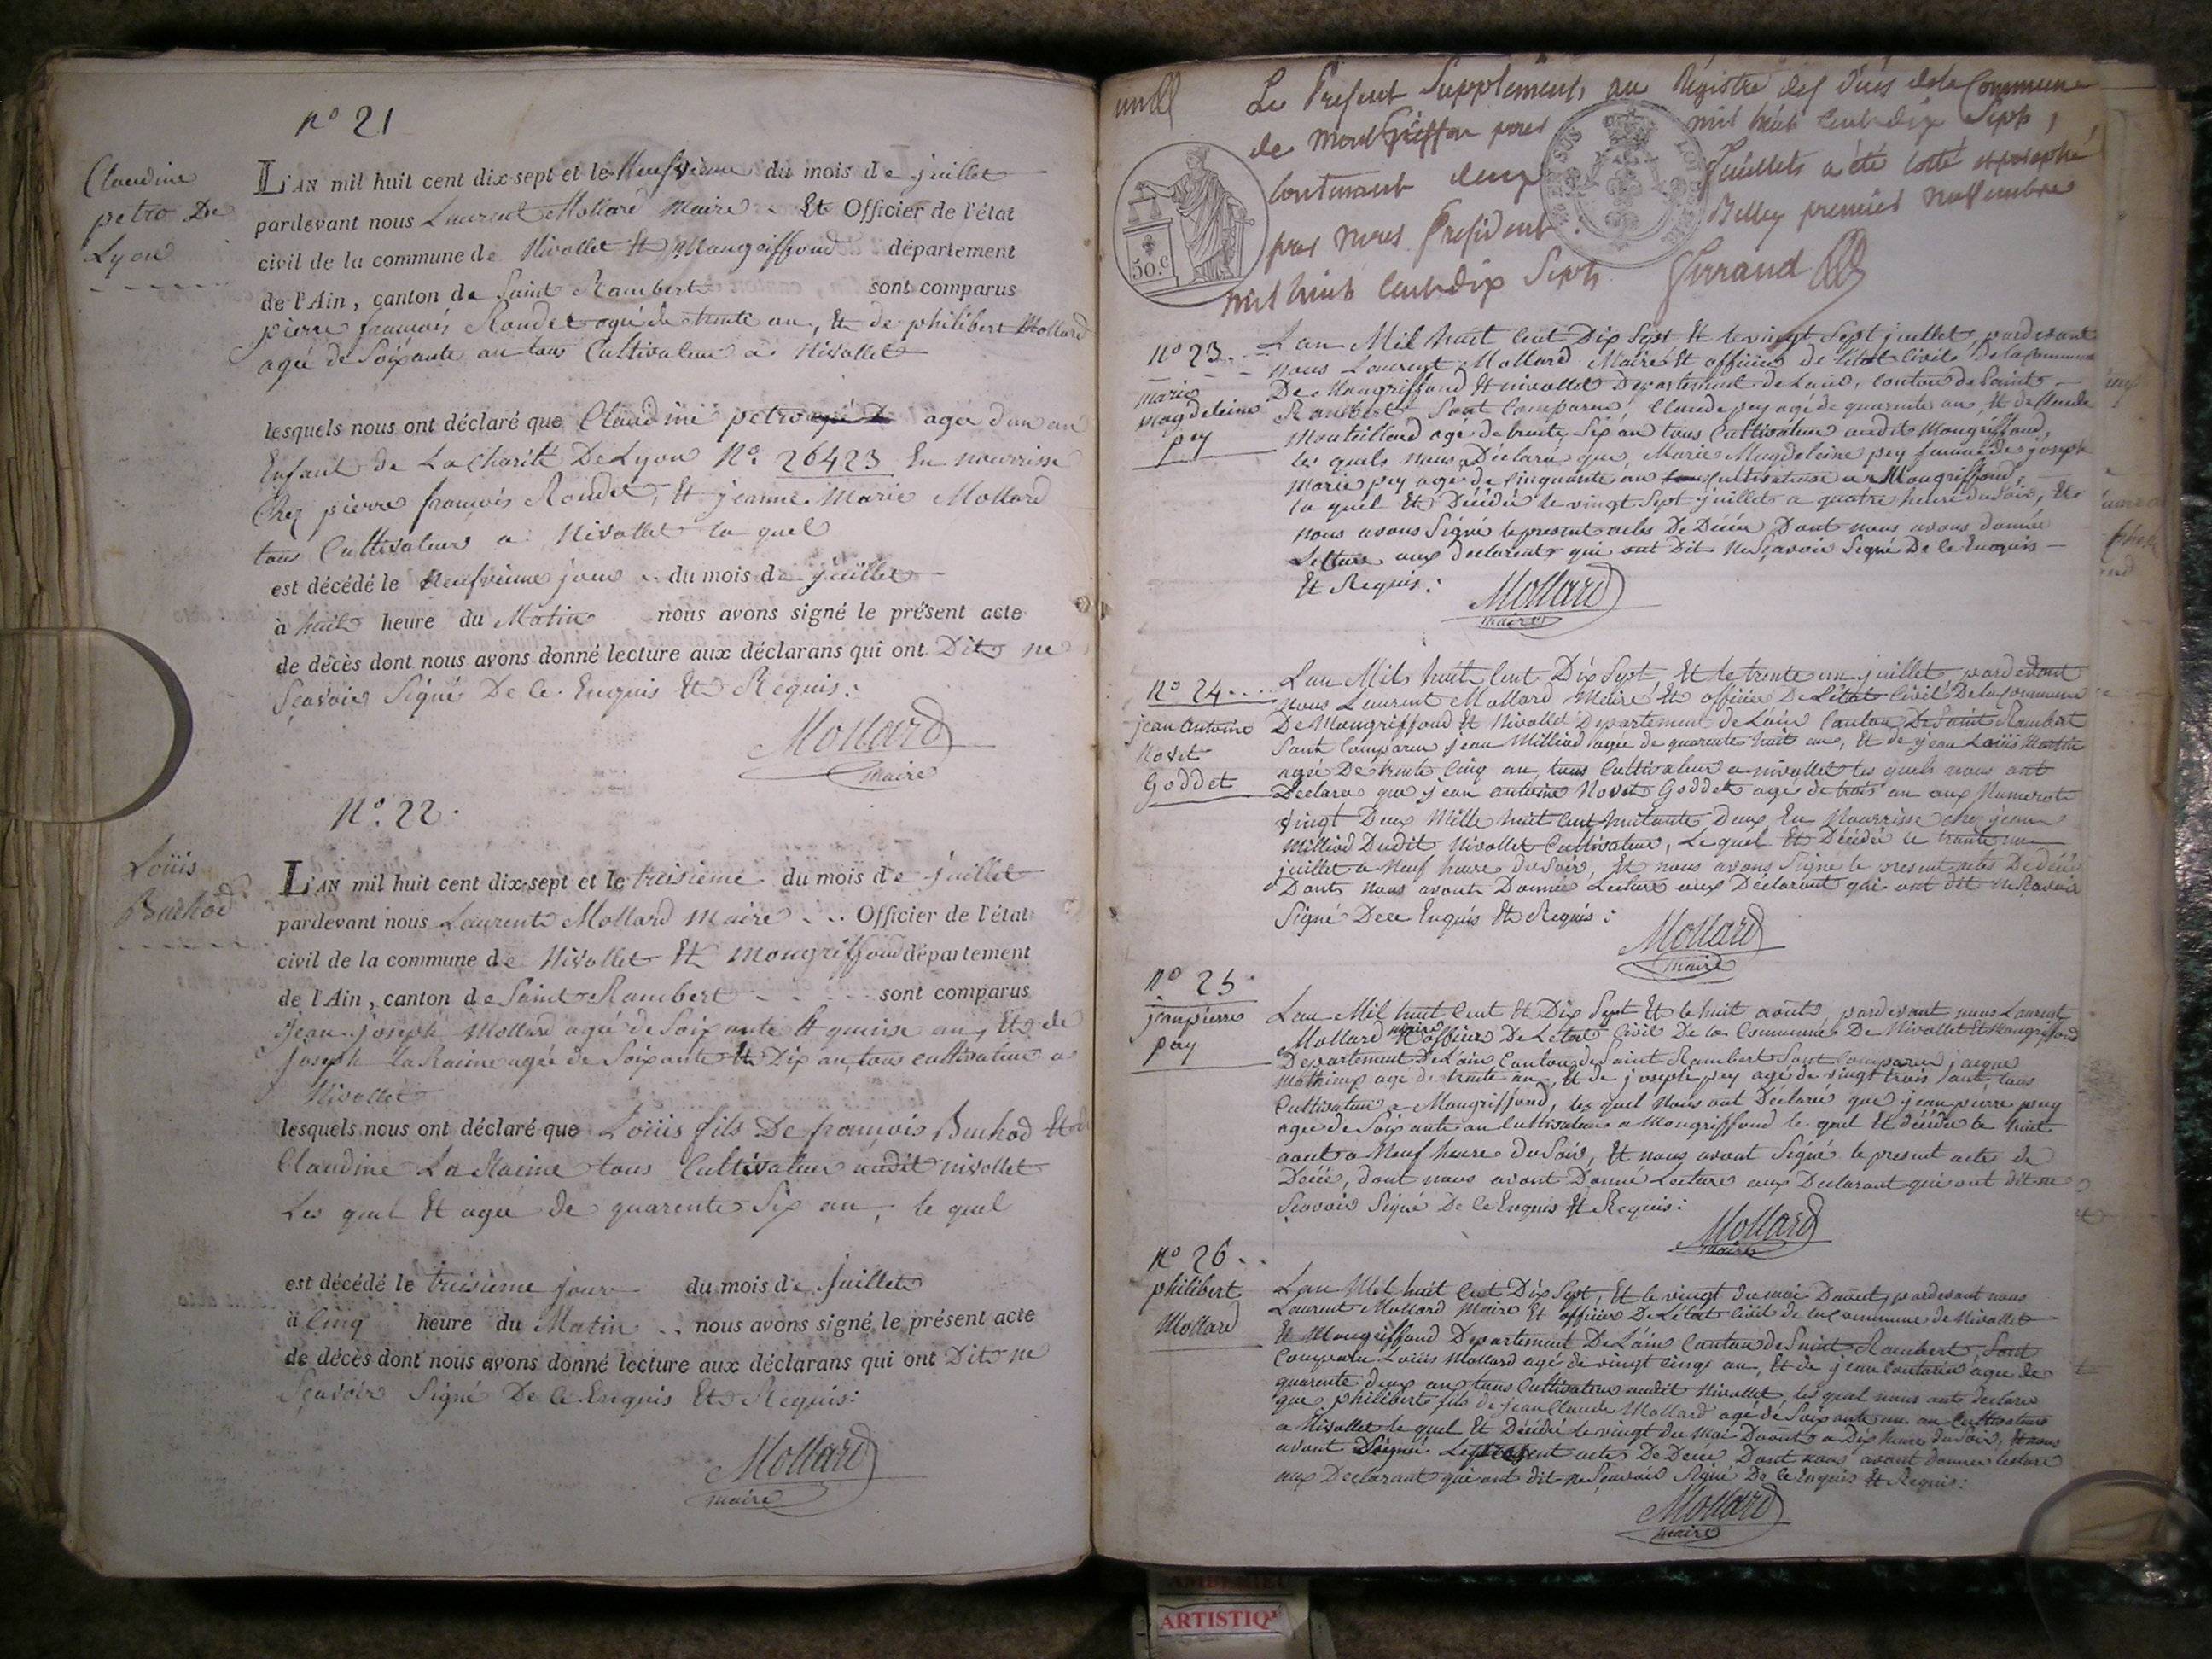 n° 21
Claudine
petro De
Lyon
L'AN mil huit cent dix-sept et le Neufvieme du mois de juillet
pardevant nous Laurent Mollard maire Et Officier de l'état
civil de la commune de Nivollet Et Mongriffond département
de l'Ain, canton de Saint Rambert sont comparus
pierre françois Roudet agé de trente an, Et de philibert Mollard
agé de Soixante an tous Cultivateur a Nivollet
lesquels nous ont déclaré que Claudine petro agée d'un an
Enfant de La Charité De Lyon N° 26423 En nourrisse
Chez pierre françois Roudet, Et jeanne Marie Mollard
tous Cultivateurs a Nivollet la quel
est décédé le Neufvieme jour du mois de juillet
à huit heure du Matin nous avons signé le présent acte
de décès dont nous avons donné lecture aux déclarans qui ont Dit ne
Sçavoir Signé De Ce Enquis Et Requis:
Mollard
maire
N° 22.
Loüis
Buchod
L'AN mil huit cent dix-sept et le treisieme du mois de juillet
pardevant nous Laurent Mollard maire Officier de l'état
civil de la commune de Nivollet Et mongriffond département
de l'Ain, canton de Saint Rambert sont comparus
Jean joseph Mollard agé de Soixante Et quinse an, Et de
joseph La Racine agée de Soixante Et Dix an, tous cultivateur a
Nivollet
lesquels nous ont déclaré que Loüis fils De françois Buchod Et
Claudine La Racine tous Cultivateur audit nivollet
Les quel Et agée de quarente Six an, le quel
est décédé le treisieme jour du mois de Juillet
à Cinq heure du Matin nous avons signé le présent acte
de décès dont nous avons donné lecture aux déclarans qui ont Dit ne
Sçavoir Signé De Ce Enquis Et Requis:
Mollard
maire
Le Present Supplement au Registre des Décès de la Commune
de Montgriffon pour mil huit cent dix Sept,
Contenant deux feuillets a été cotté et paraphé
par nous President. Belley premier Novembre
mil huit cent dix Sept. Girraud
50.c
n° 23
marie
magdeleine
pey
L'an Mil huit Cent Dix Sept Et le vingt Sept juillet, pardevant
nous Laurent Mollard Maire Et officier de L'état Civil De la Commune
De Mongriffond Et nivollet Departement de L'ain, Canton de Saint
Rambert Sont Comparus, Claude pey agé de quarente an, Et de Claude
Montillard agé de trente Six an tous Cultivateur audit Mongriffond,
les quels nous Déclaré que Marie Magdeleine pey femme de joseph
Marie pey agée de Cinquante an Cultivateuse a Mongriffond,
la quel Et Décédée le vingt Sept juillet a quatre heure du Soir, Et
nous avons Signé le present acte De Décée Dont nous avons donnée
Lecture aux declarent qui ont Dit Ne Sçavoir Signé De Ce Enquis
Et Requis:
Mollard
maire
n° 24
jean antoine
Novet
Goddet
L'an Mil huit Cent Dix Sept, Et le trente un juillet, pardevant
nous Laurent Mollard Maire Et officier De L'état Civil De la Commune
De Mongriffond Et Nivollet Departement de L'ain Canton De Saint Rambert
Sont Comparus jean Milliod agée de quarente huit an, Et de jean Loüis Martin
agée De trente Cinq an, tous Cultivateur a nivollet les quels nous ont
Declaré que jean antoine Novet Goddet agé de trois an aux Numerote
vingt Deux Mille huit Cent huitante Deux En Nourrisse chez jean
Milliod Dudit Nivollet Cultivateur, Le quel Et Décédée le trente un
juillet a Neuf heure du Soir, Et nous avons Signé le present acte De Décée
Dont nous avont Donnée Lecture aux Déclarant qui ont dit ne Sçavoir
Signé De ce Enquis Et Requis:
Mollard
maire
n° 25
jean pierre
pey
L'an Mil huit Cent Et Dix Sept Et le huit août, pardevant nous Laurent
Mollard maire Et officier De L'état Civil De la Commune De Nivollet Et Mongriffond
Departement De L'ain Canton de Saint Rambert Sont Comparus jacque
agé de trente an, Et de joseph pey agé de vingt trois ant, tous
Cultivateur a Mongriffond, les quel Nous ont Déclaré que jean pierre pey
agée de Soixante an Cultivateur a Mongriffond le quel Et décédée le huit
aout a Neuf heure du Soir, Et nous avont Signé le present acte de
Décée, dont nous avont Donné Lecture aux Declarant qui ont dit ne
Sçavoir Signé De Ce Enquis Et Requis:
Mollard
maire
n° 26
philibert
Mollard
L'an Mil huit Cent Dix Sept, Et le vingt du moi Daout, pardevant nous
Laurent Mollard Maire Et officier De L'état Civil de la Commune de Nivollet
Et Mongriffond Departement De L'ain Canton de Saint Rambert, Sont
Comparu Loüis Mollard agé de vingt cinq an, Et de jean agée de
quarente deux an tous Cultivateur audit Nivollet, les quel nous ont declaré
que philibert fils de jean Claude Mollard agé de Soixante un an Cultivateur
a Nivollet le quel Et Décédé le vingt du moi Daout a Dix heure du Soir, Et nous
avont Signé Le present acte De Décée Dont nous avont donnée lecture
aux Declarant qui ont dit ne Sçavoir Signé De Ce Enquis Et Requis:
Mollard
maire
ARTISTIQ